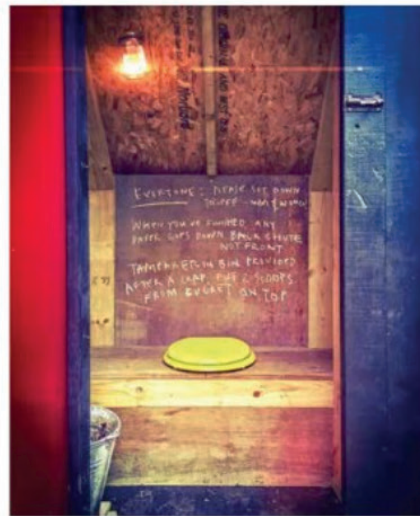 EVERYONE: PLEASE SIT DOWN
WHEN YOU'VE FINISHED ANY
PAPER GOES DOWN BACK CHUTE
NOT FRONT
IN BIN PROVIDED
AFTER A CRAP, PUT 2 SCOOPS
FROM BUCKET ON TOP